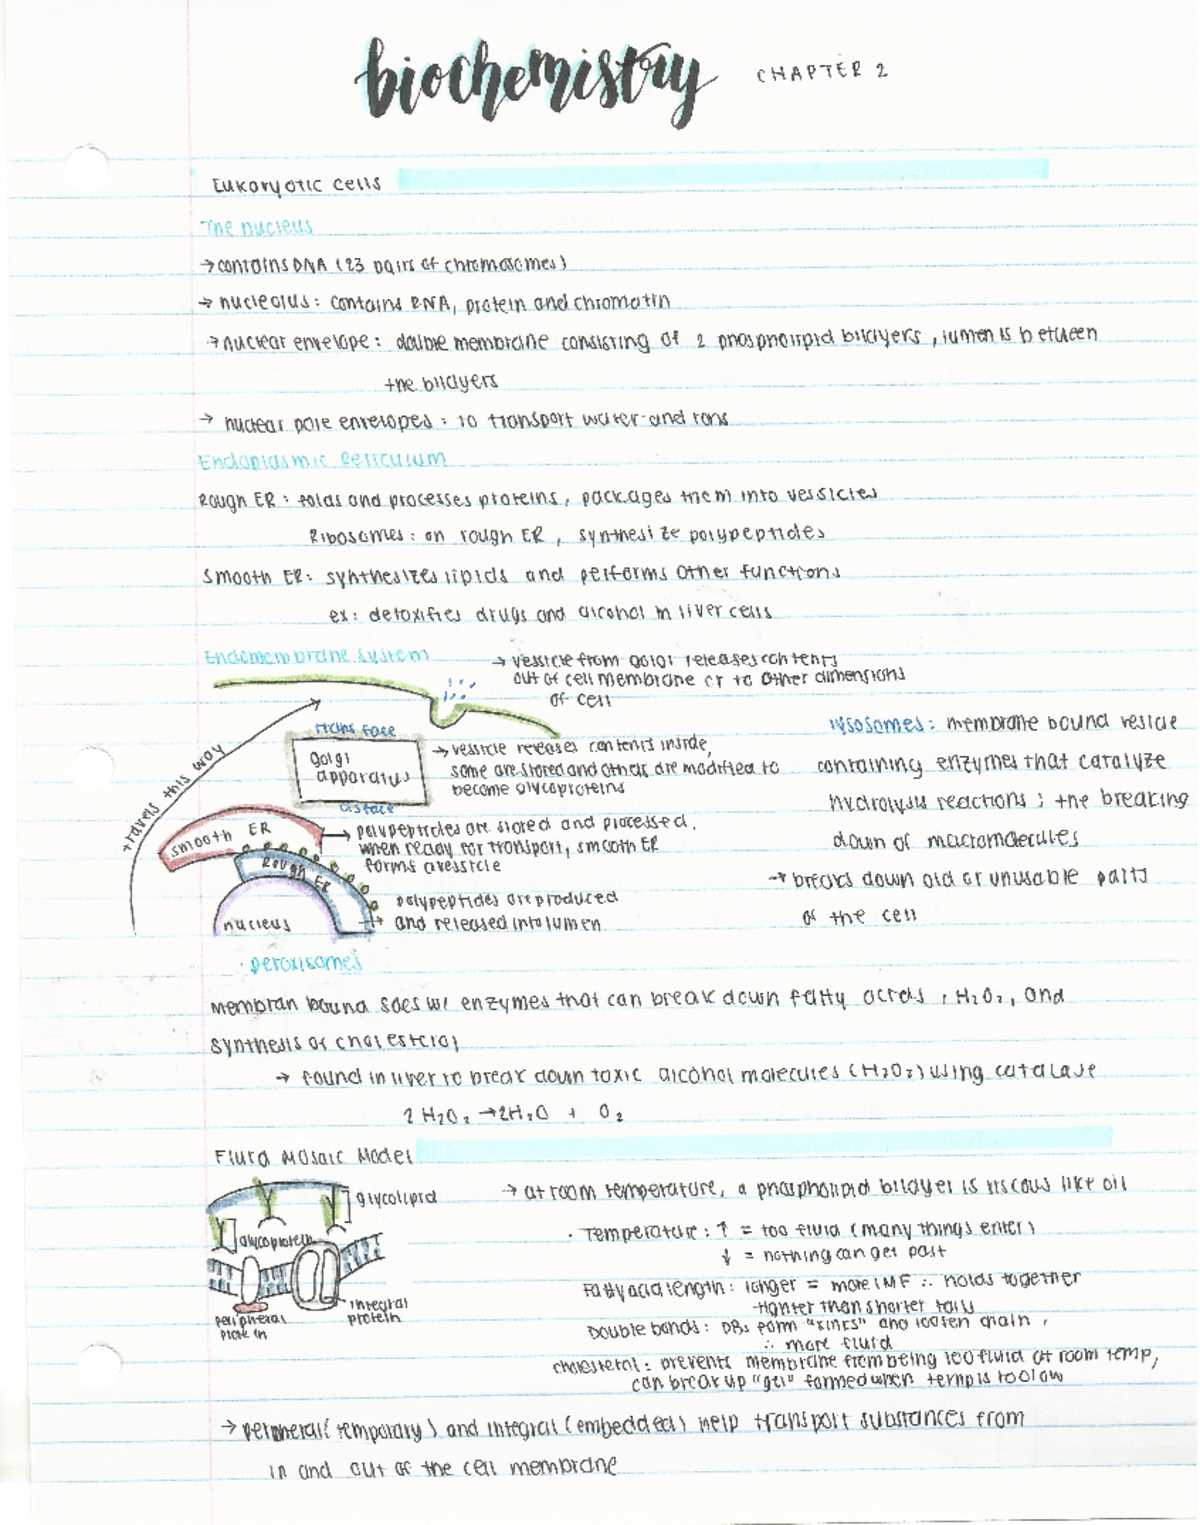 biochemistry CHAPTER 2
Eukaryotic cells
The nucleus
→ contains DNA (23 pairs of chromosomes)
→ nucleolus: contains RNA, protein and chromatin
→ nuclear envelope: double membrane consisting of 2 phospholipid bilayers, lumen is between
the bilayers
→ nuclear pore envelopes: to transport water and ions
Endoplasmic Reticulum
Rough ER: folds and processes proteins, packages them into vessicles
Ribosomes: on rough ER, synthesize polypeptides
Smooth ER: synthesizes lipids and performs other functions
ex: detoxifies drugs and alcohol in liver cells
Endomembrane system
→ vessicle from golgi releases contents
out of cell membrane or to other dimensions
of cell
travels this way
trans face
golgi
apparatus
cis face
→ vessicle releases contents inside,
some are stored and others are modified to
become glycoproteins
smooth ER
→ polypeptides are stored and processed.
when ready for transport, smooth ER
forms a vessicle
Rough ER
nucleus
polypeptides are produced
→ and released into lumen
lysosomes: membrane bound vesicle
containing enzymes that catalyze
hydrolysis reactions; the breaking
down of macromolecules
→ breaks down old or unusable parts
of the cell
· peroxisomes
membran bound sacs w/ enzymes that can break down fatty acids, H₂O₂, and
synthesis of cholesterol
→ found in liver to break down toxic alcohol molecules (H₂O₂) using catalase
2 H₂O₂ → 2H₂O + O₂
Fluid Mosaic Model
glycolipid
glycoprotein
peripheral
protein
integral
protein
→ at room temperature, a phospholipid bilayer is viscous like oil
· Temperature: ↑ = too fluid (many things enter)
↓ = nothing can get past
Fatty acid length: longer = more IMF ∴ holds together
tighter than shorter tails
Double bonds: DBs form "kinks" and loosen chain,
∴ more fluid
cholesterol: prevents membrane from being too fluid at room temp,
can break up "gel" formed when temp is too low
→ peripheral (temporary) and integral (embedded) help transport substances from
in and out of the cell membrane